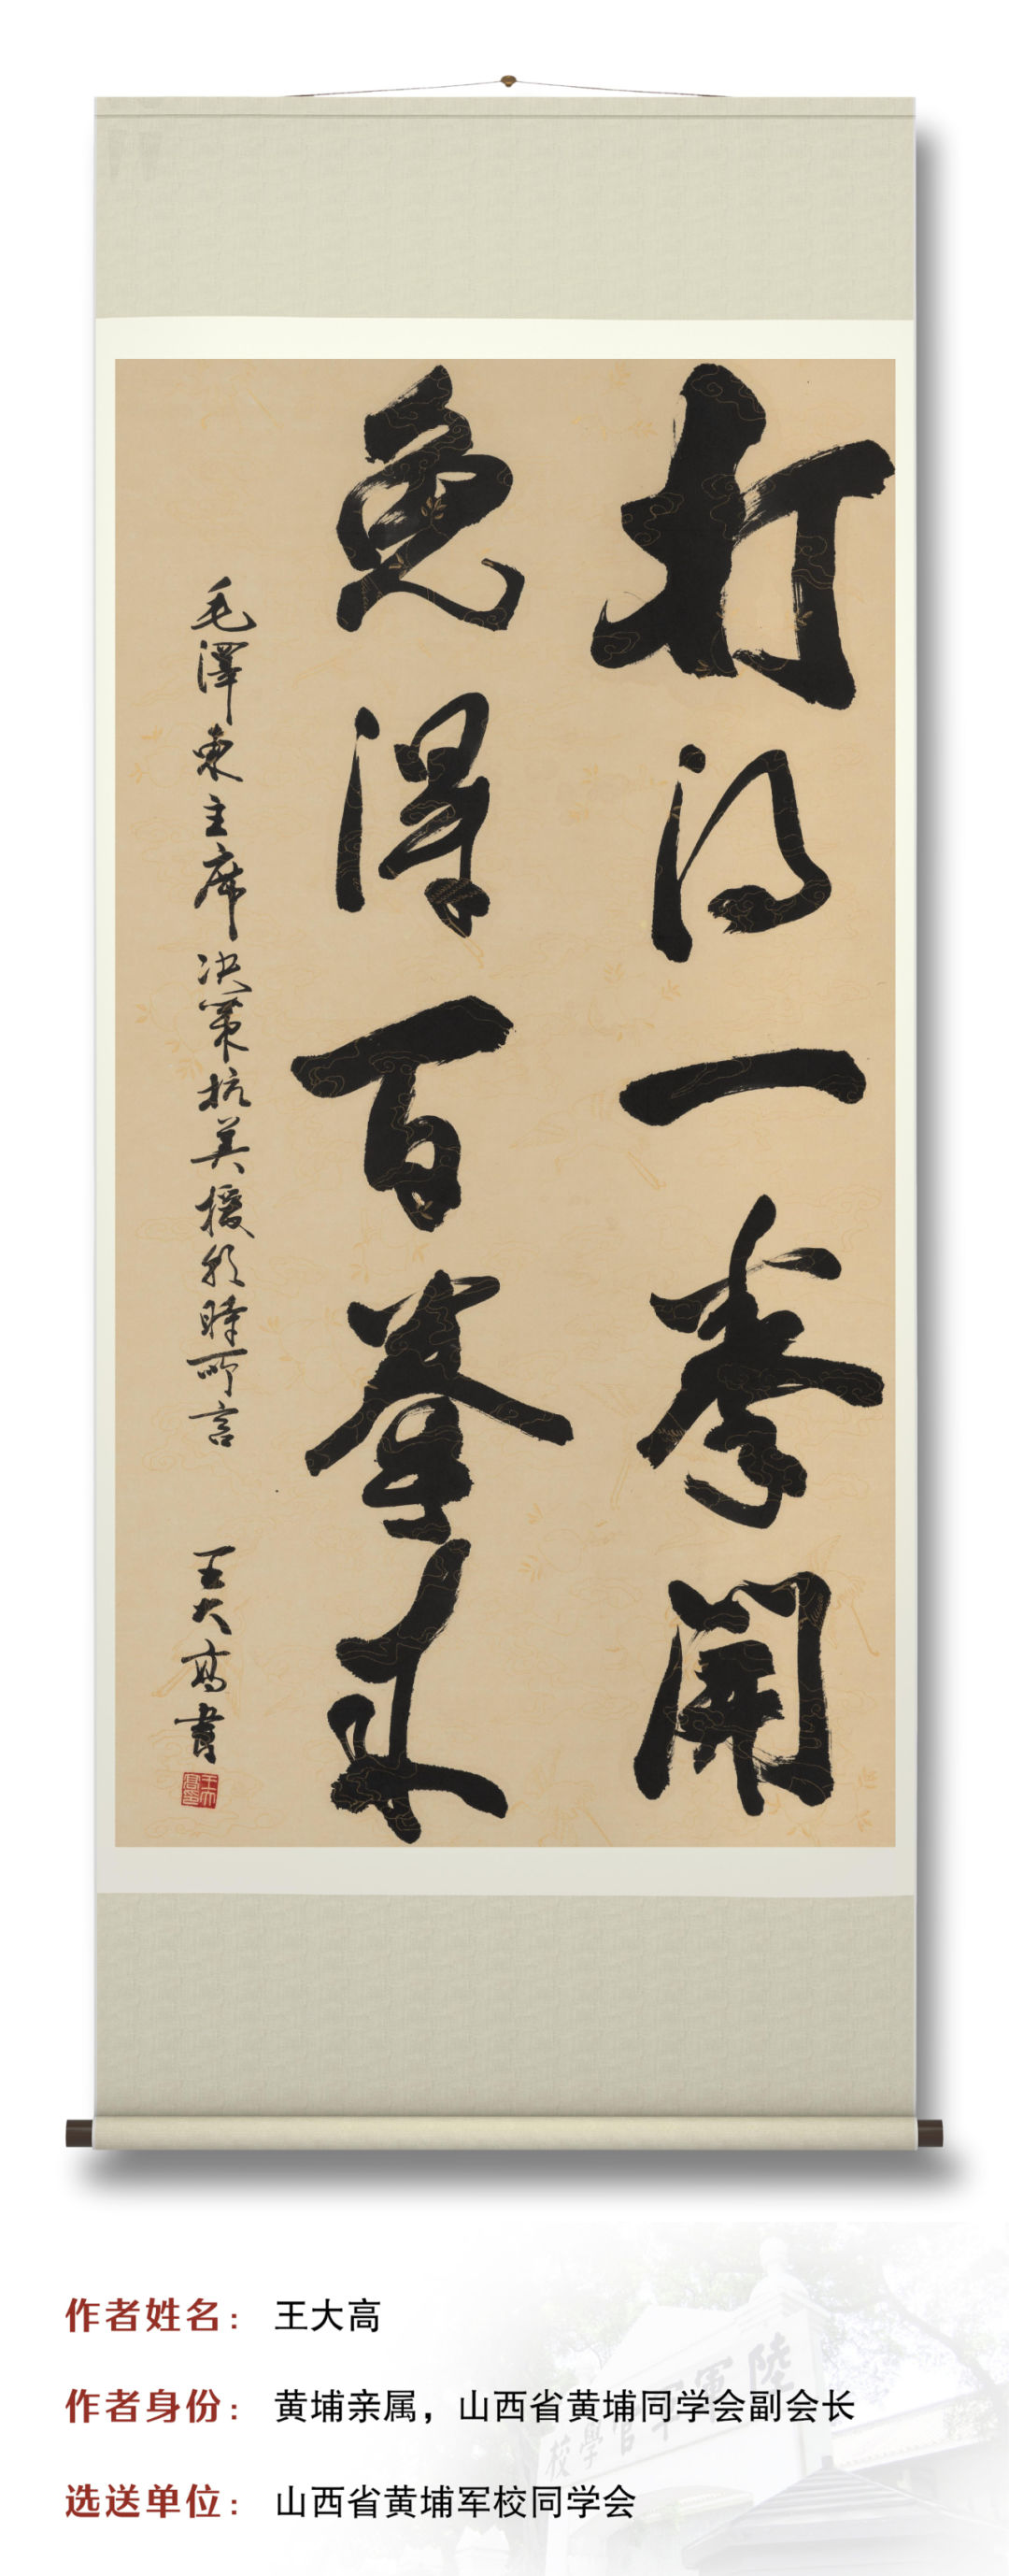 打得一拳開
免得百拳来
毛澤东主席决策抗美援朝時所言
王大高書
王大高印
作者姓名：王大高
作者身份：黄埔亲属，山西省黄埔同学会副会长
选送单位：山西省黄埔军校同学会
陸軍軍官學校